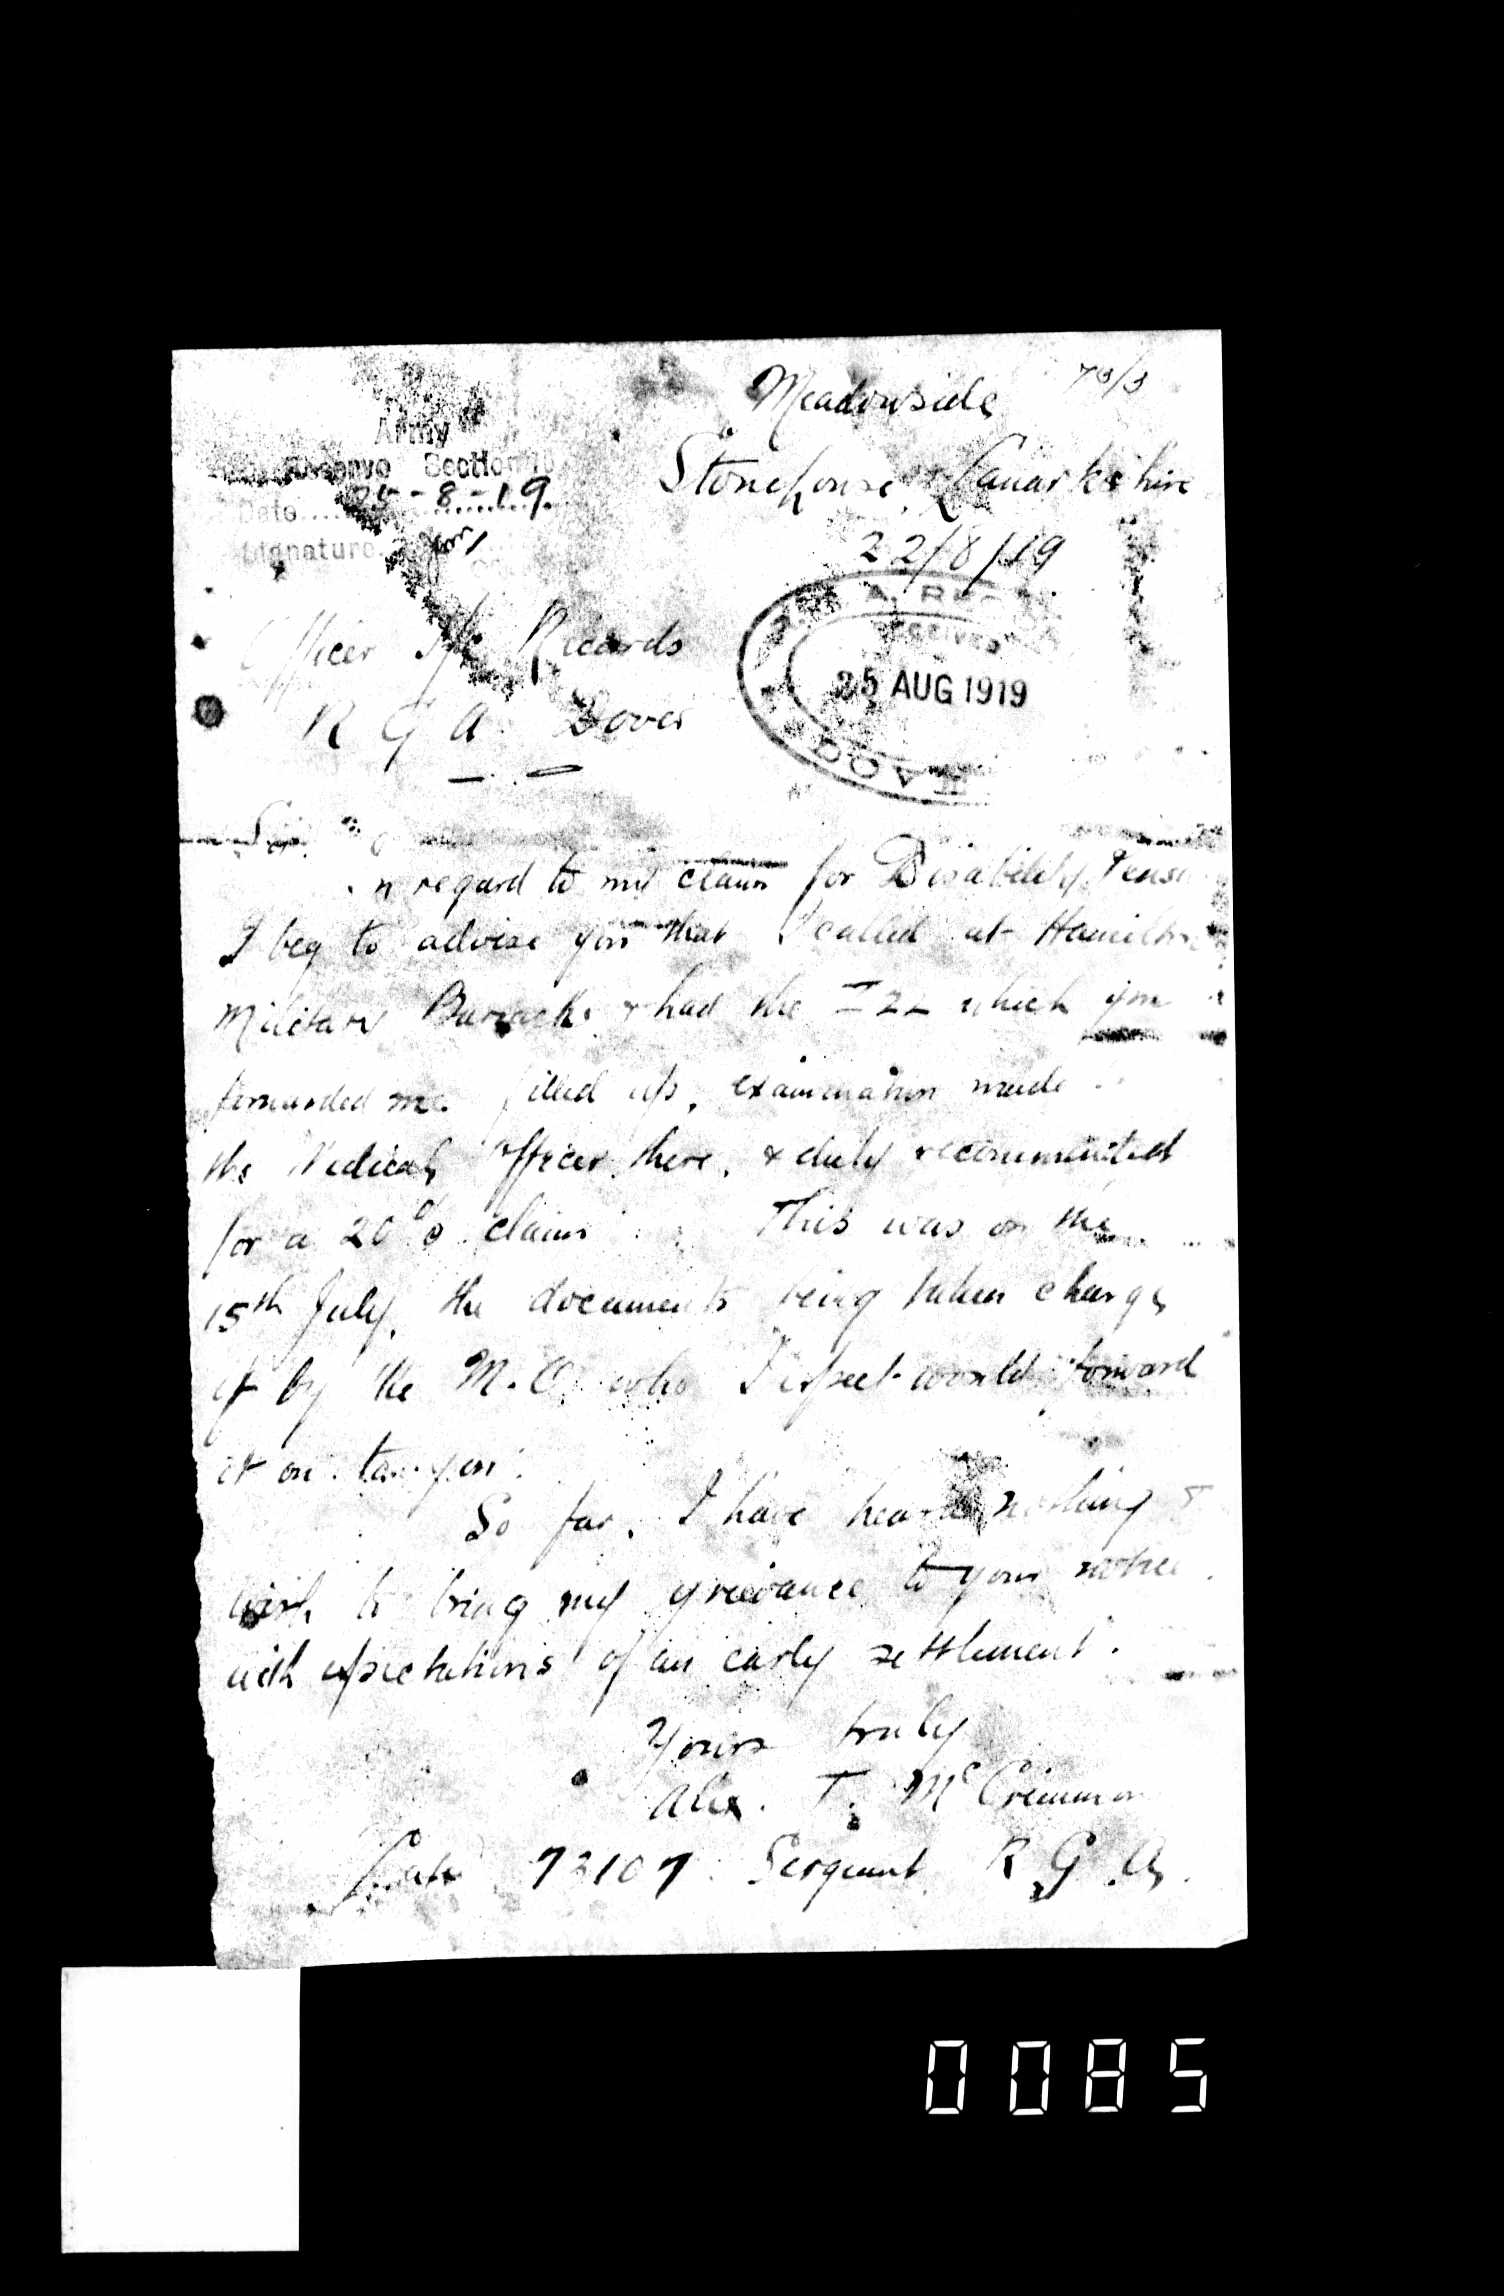 Meadowside
Stonehouse, Lanarkshire
22/8/19
Army
Reserve Section
Date 25-8-19
Signature
Officer I/c Records
R G A Dover
R.G.A. RECORDS
RECEIVED
25 AUG 1919
DOVER
Sir
In regard to my claim for Disability Pension
I beg to advise you that I called at Hamilton
Military Barracks & had the Z22 which you
forwarded me filled up, examination made
the Medical Officer there, & duly recommended
for a 20% claim. This was on the
15th July, the documents being taken charge
of by the M.O. who I expect would forward
it on to you.
So far, I have heard nothing &
wish to bring my grievance to your notice
with expectations of an early settlement.
Yours truly
Alex. T. McCrimmon
Late 73107 Sergeant R G A.
0085